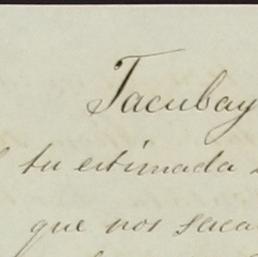 Tacubay
tu estimada
que nos saca